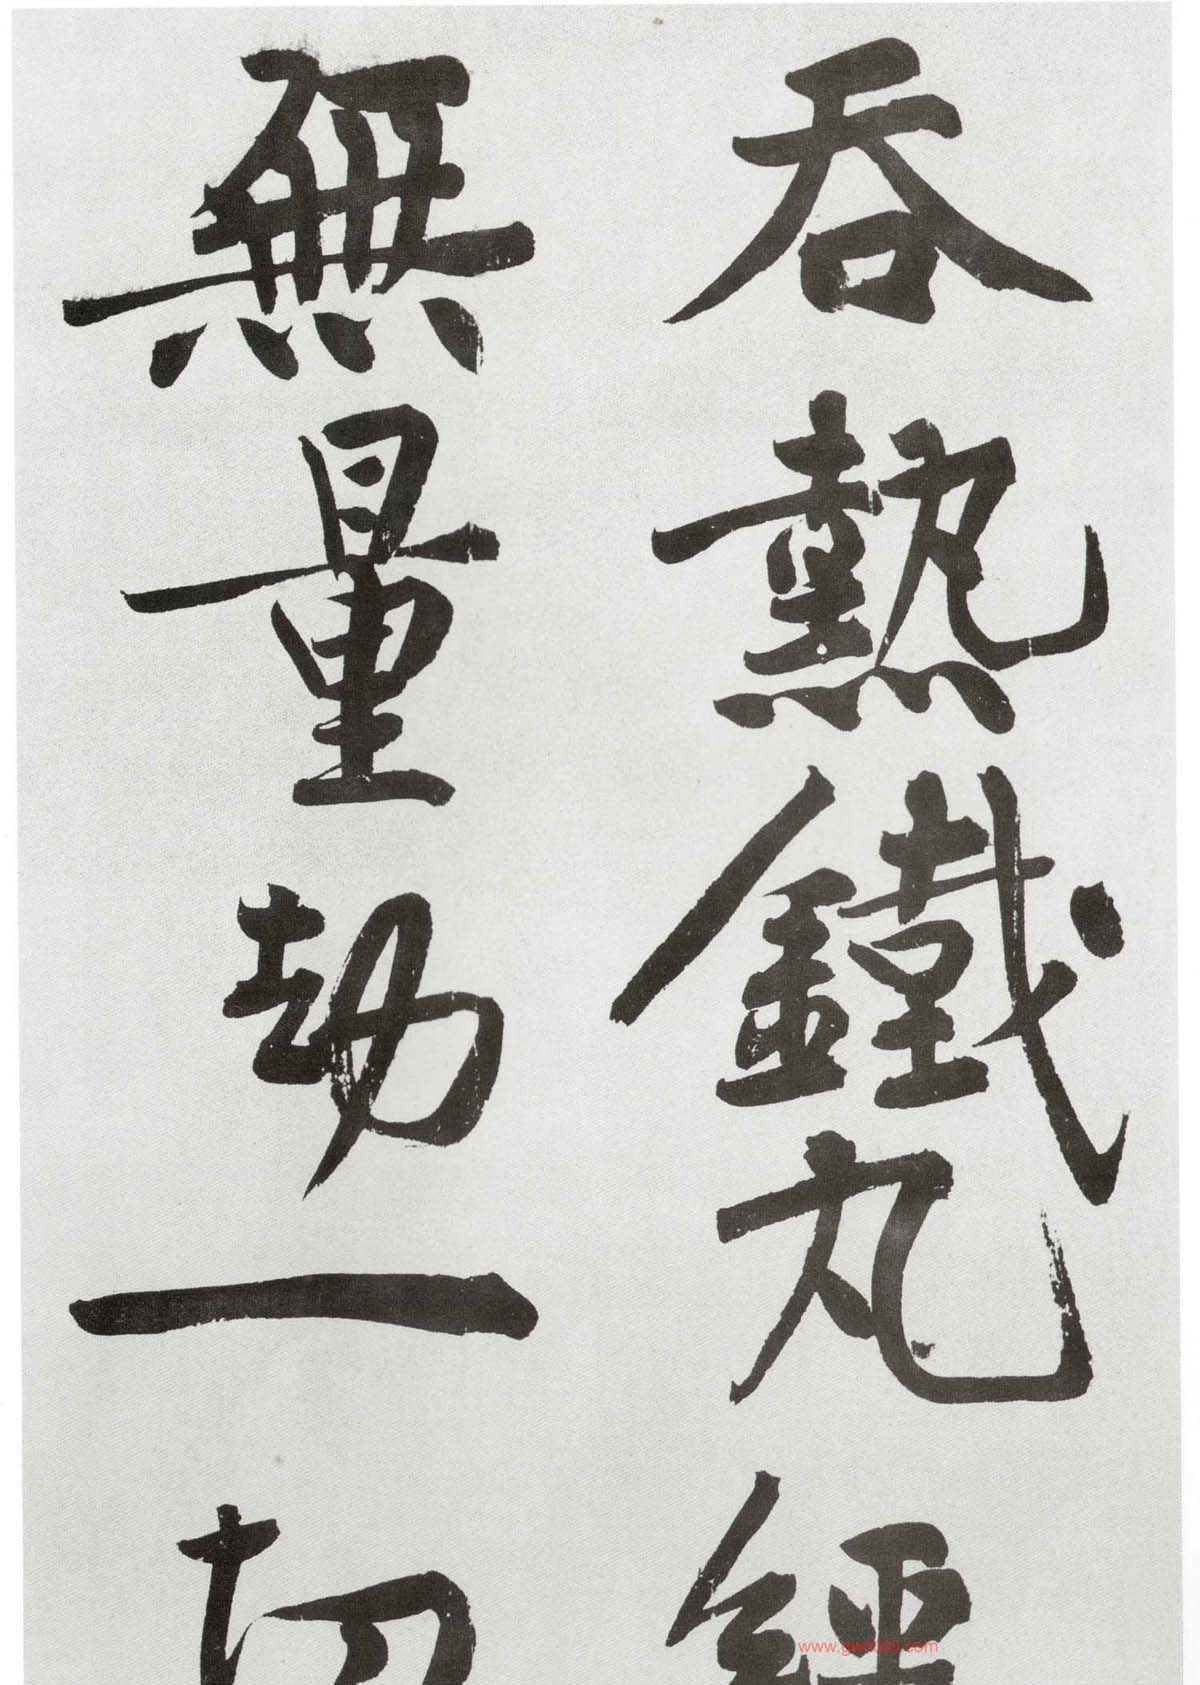 吞熱鐵丸經
無量劫一切
www.gw8000.com